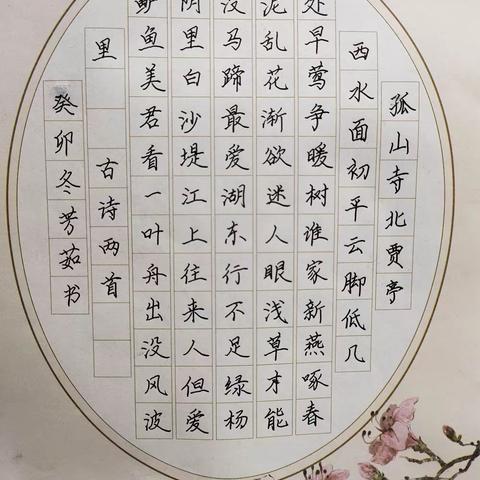 孤山寺北贾亭
西水面初平云脚低几
处早莺争暖树谁家新燕啄春
泥乱花渐欲迷人眼浅草才能
没马蹄最爱湖东行不足绿杨
阴里白沙堤江上往来人但爱
鲈鱼美君看一叶舟出没风波
里 古诗两首
癸卯冬芳茹书